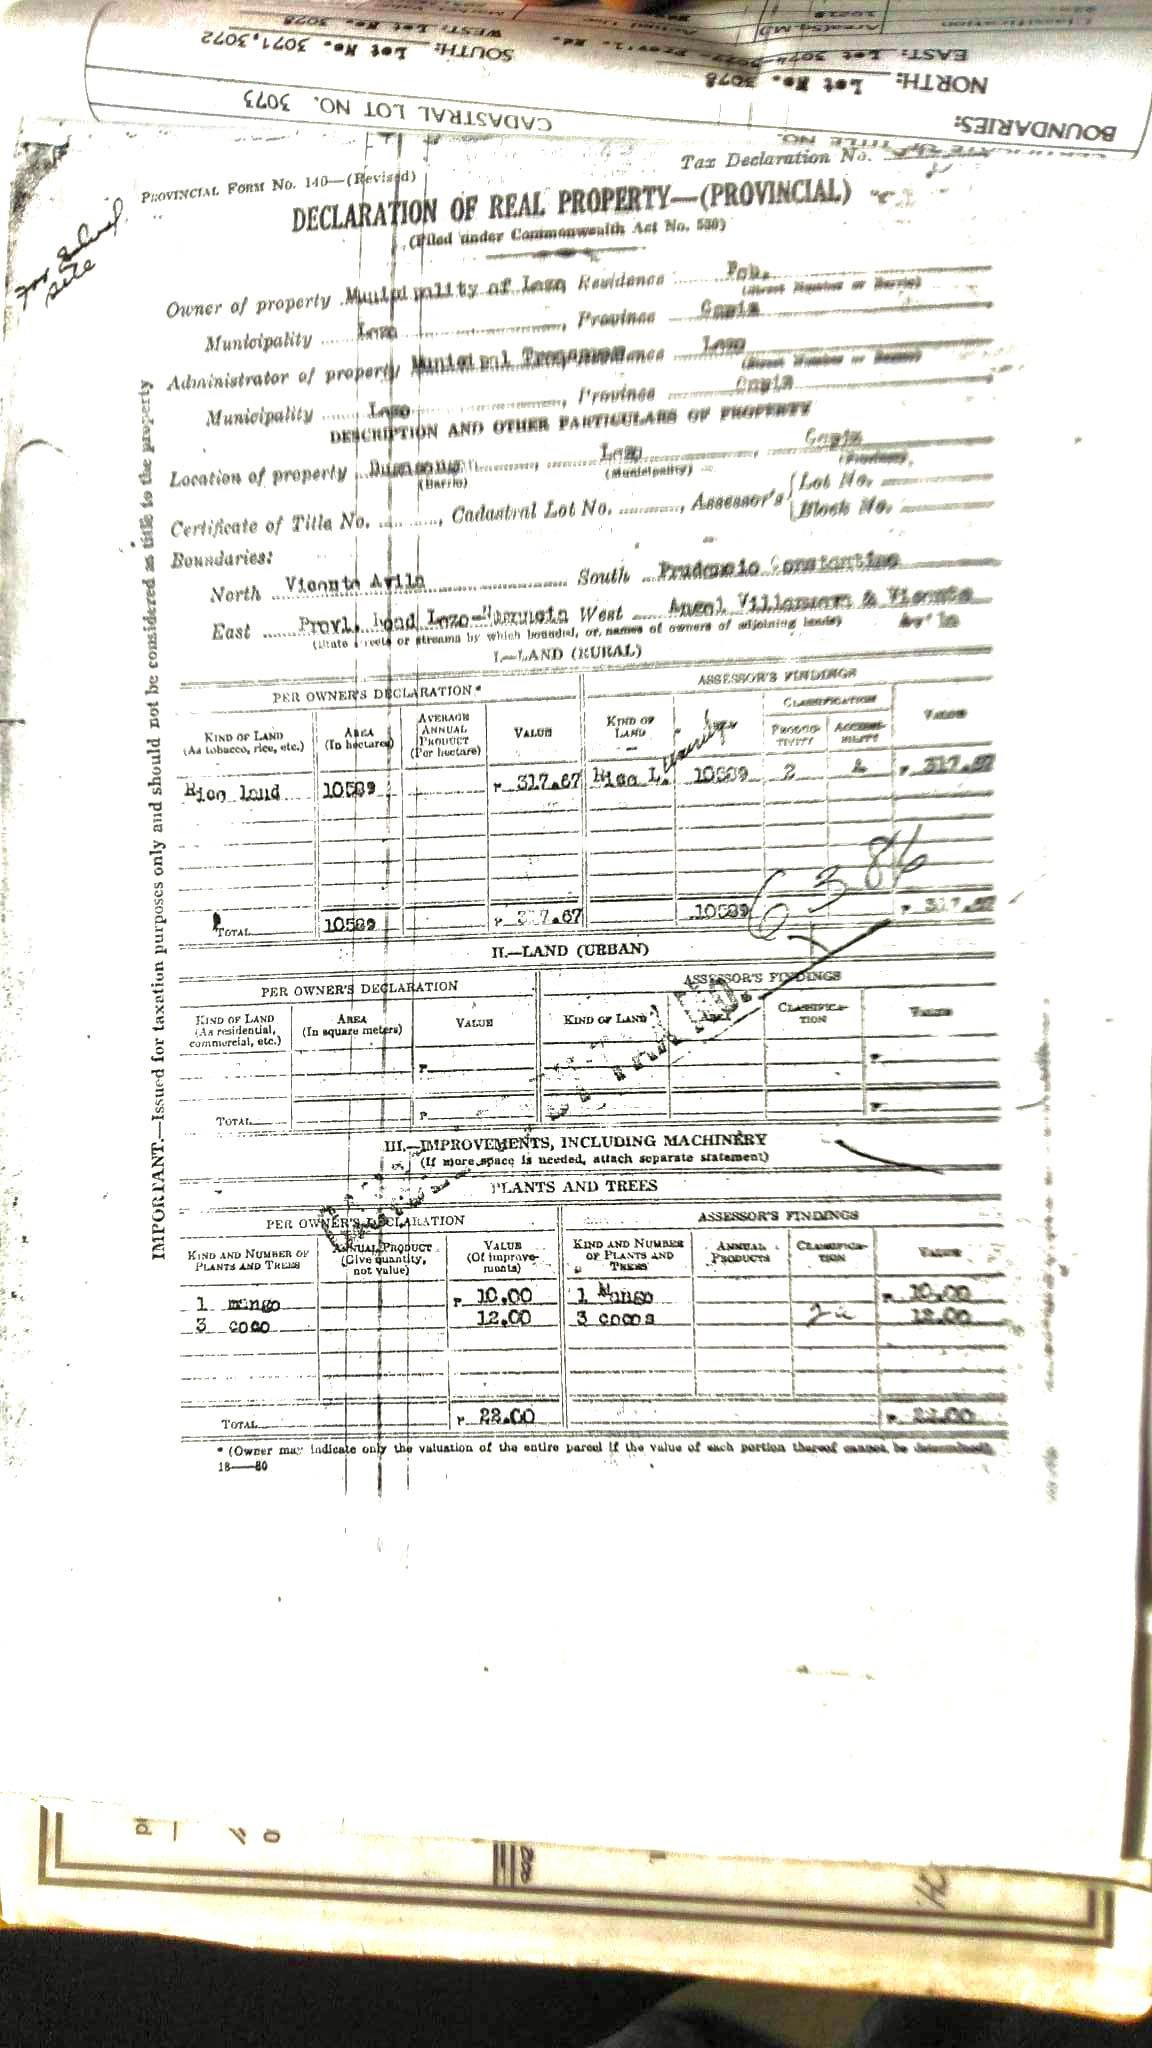 BOUNDARIES:
CADASTRAL LOT NO. 3073
NORTH: Lot No. 3078
EAST: Lot No.
SOUTH: Lot No. 3071,3072
WEST: Lot No. 3078
Tax Declaration No.
PROVINCIAL FORM NO. 140—(Revised)
DECLARATION OF REAL PROPERTY—(PROVINCIAL)
(Filed under Commonwealth Act No. 530)
For School
site
Owner of property Municipality of Lezo Residence Pob.
(Street Number or Barrio)
Municipality Lezo, Province Capiz
Administrator of property Municipal Residence Lezo
(Street Number or Barrio)
Municipality Lezo, Province Capiz
DESCRIPTION AND OTHER PARTICULARS OF PROPERTY
Location of property , Lezo, Capiz
(Barrio) (Municipality) (Province)
Certificate of Title No. , Cadastral Lot No. , Assessor's Lot No.
Block No.
Boundaries:
North Vicente Avila South Prudencio Constantino
East Provl. Road West Angel & Vicente
(State streets or streams by which bounded, or names of owners of adjoining lands)
I.—LAND (RURAL)
PER OWNER'S DECLARATION* ASSESSOR'S FINDINGS
KIND OF LAND (As tobacco, rice, etc.) AREA (In hectares) AVERAGE ANNUAL PRODUCT (Per hectare) VALUE KIND OF LAND CLASSIFICATION PRODUCTIVITY ACCESSIBILITY VALUE
Rice land 10589 ₱ 317.67 Rice L. 10589 2 ₱ 317.67
6386
TOTAL 10589 ₱ 317.67 10589 ₱ 317.67
II.—LAND (URBAN)
PER OWNER'S DECLARATION ASSESSOR'S FINDINGS
KIND OF LAND (As residential, commercial, etc.) AREA (In square meters) VALUE KIND OF LAND AREA CLASSIFICATION VALUE
₱ ₱
TOTAL ₱ ₱
III.—IMPROVEMENTS, INCLUDING MACHINERY
(If more space is needed, attach separate statement)
PLANTS AND TREES
PER OWNER'S DECLARATION ASSESSOR'S FINDINGS
KIND AND NUMBER OF PLANTS AND TREES ANNUAL PRODUCT (Give quantity, not value) VALUE (Of improvements) KIND AND NUMBER OF PLANTS AND TREES ANNUAL PRODUCTS CLASSIFICATION VALUE
1 mango ₱ 10.00 1 Mango ₱ 10.00
3 coco 12.00 3 cocos 12.00
TOTAL ₱ 22.00 ₱ 22.00
* (Owner may indicate only the valuation of the entire parcel if the value of each portion thereof cannot be determined)
18——80
IMPORTANT.—Issued for taxation purposes only and should not be considered as title to the property